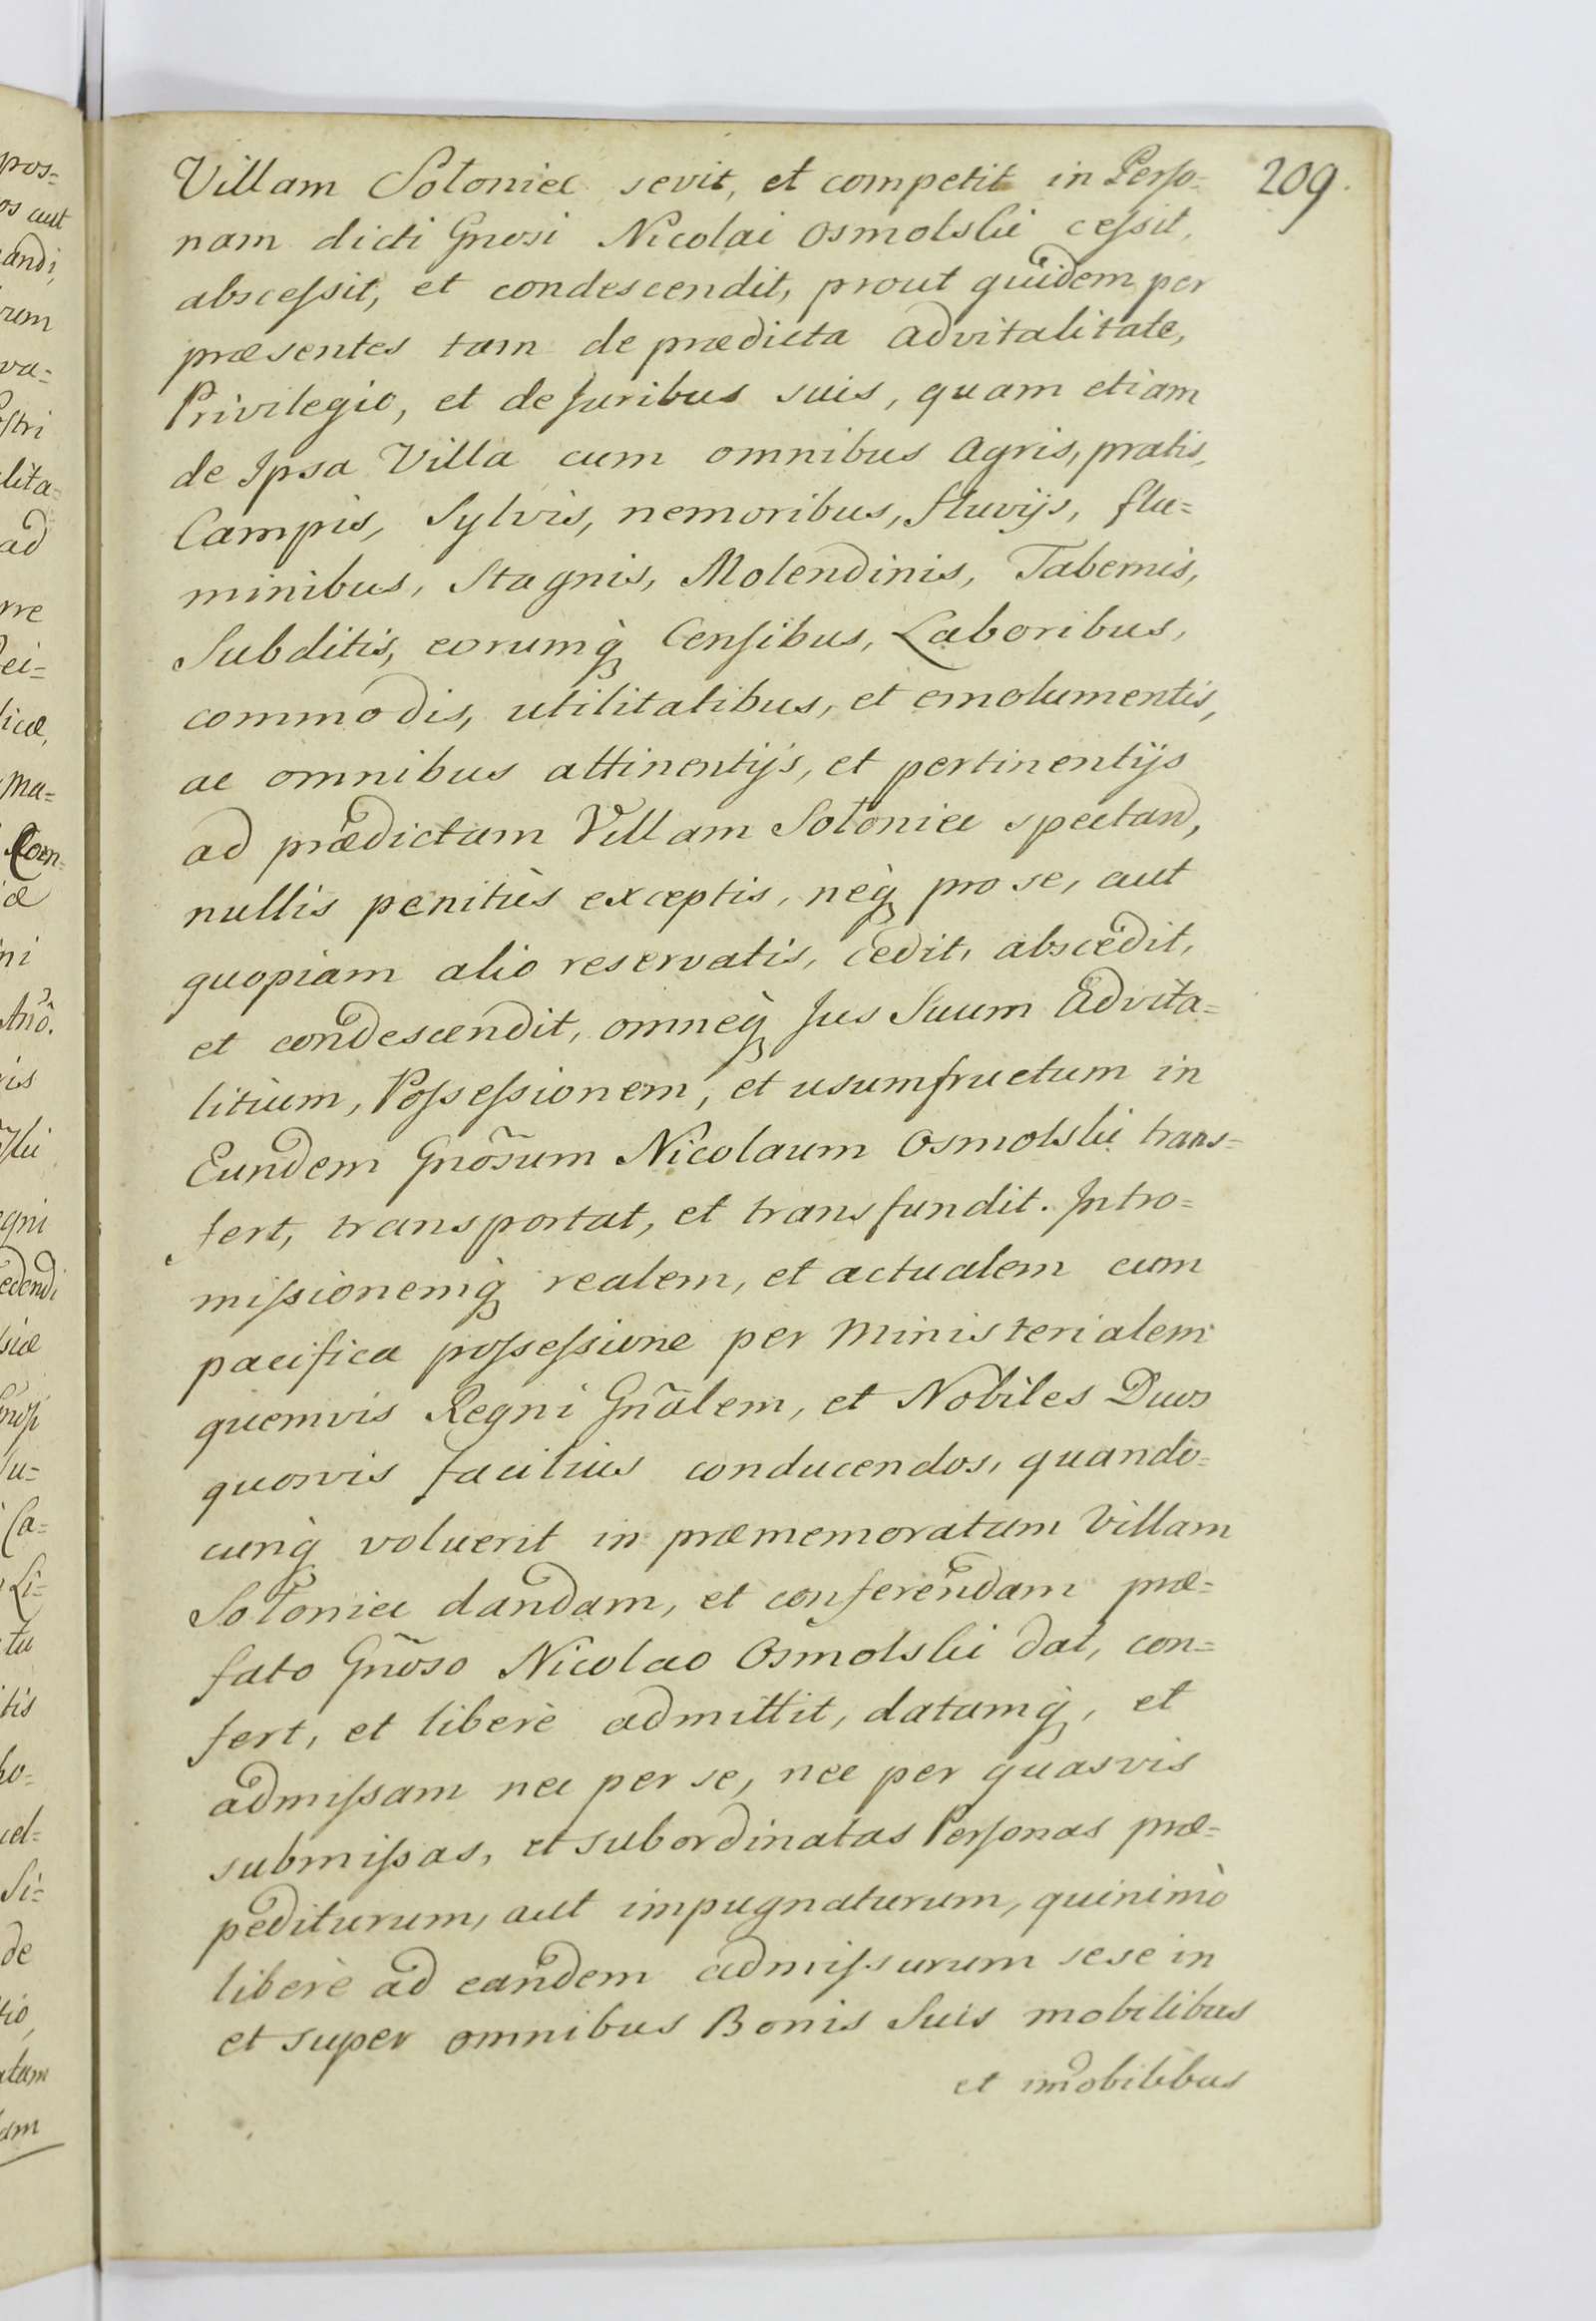 209.
Villam Sotoniec sevit, et competit in Perso=
nam dicti Gnosi Nicolai Osmolski cessit,
abscessit, et condescendit, prout quidem per
præsentes tam de prædicta advitalitate,
Privilegio, et de Juribus suis, quam etiam
de Ipsa Villa cum omnibus agris, pratis,
Campis, Sylvis, nemoribus, fluvijs, flu=
minibus, Stagnis, Molendinis, Tabernis,
Subditis, eorumq̀ Censibus, Laboribus,
commodis, utilitatibus, et emolumentis,
ac omnibus attinentijs, et pertinentijs
ad prædictam Villam Sotoniec spectand,
nullis penitùs exceptis, neq̀ pro se, aut
quopiam alio reservatis, cedit, abscedit,
et condescendit, omneq̀ Jus Suum Advita=
litium, Possessionem, et usumfructum in
Eundem Gnõsum Nicolaum Osmolski trans=
fert, transportat, et transfundit. Intro=
missionemq̀ realem, et actualem cum
pacifica possessione per Ministerialem
quemvis Regni Gnãlem, et Nobiles Duos
quosvis facilius conducendos, quando=
cunq̀ voluerit in præmemoratam Villam
Sotoniec dandam, et conferendam præ=
fato Gnõso Nicolao Osmolski dat, con=
fert, et liberè admittit, datamq̀, et
admissam nec per se, nec per quasvis
submissas, et subordinatas Personas præ=
pediturum, aut impugnaturum, quinimò
liberè ad eandem admissurum sese in
et super omnibus Bonis Suis mobilibus
et imobilibus